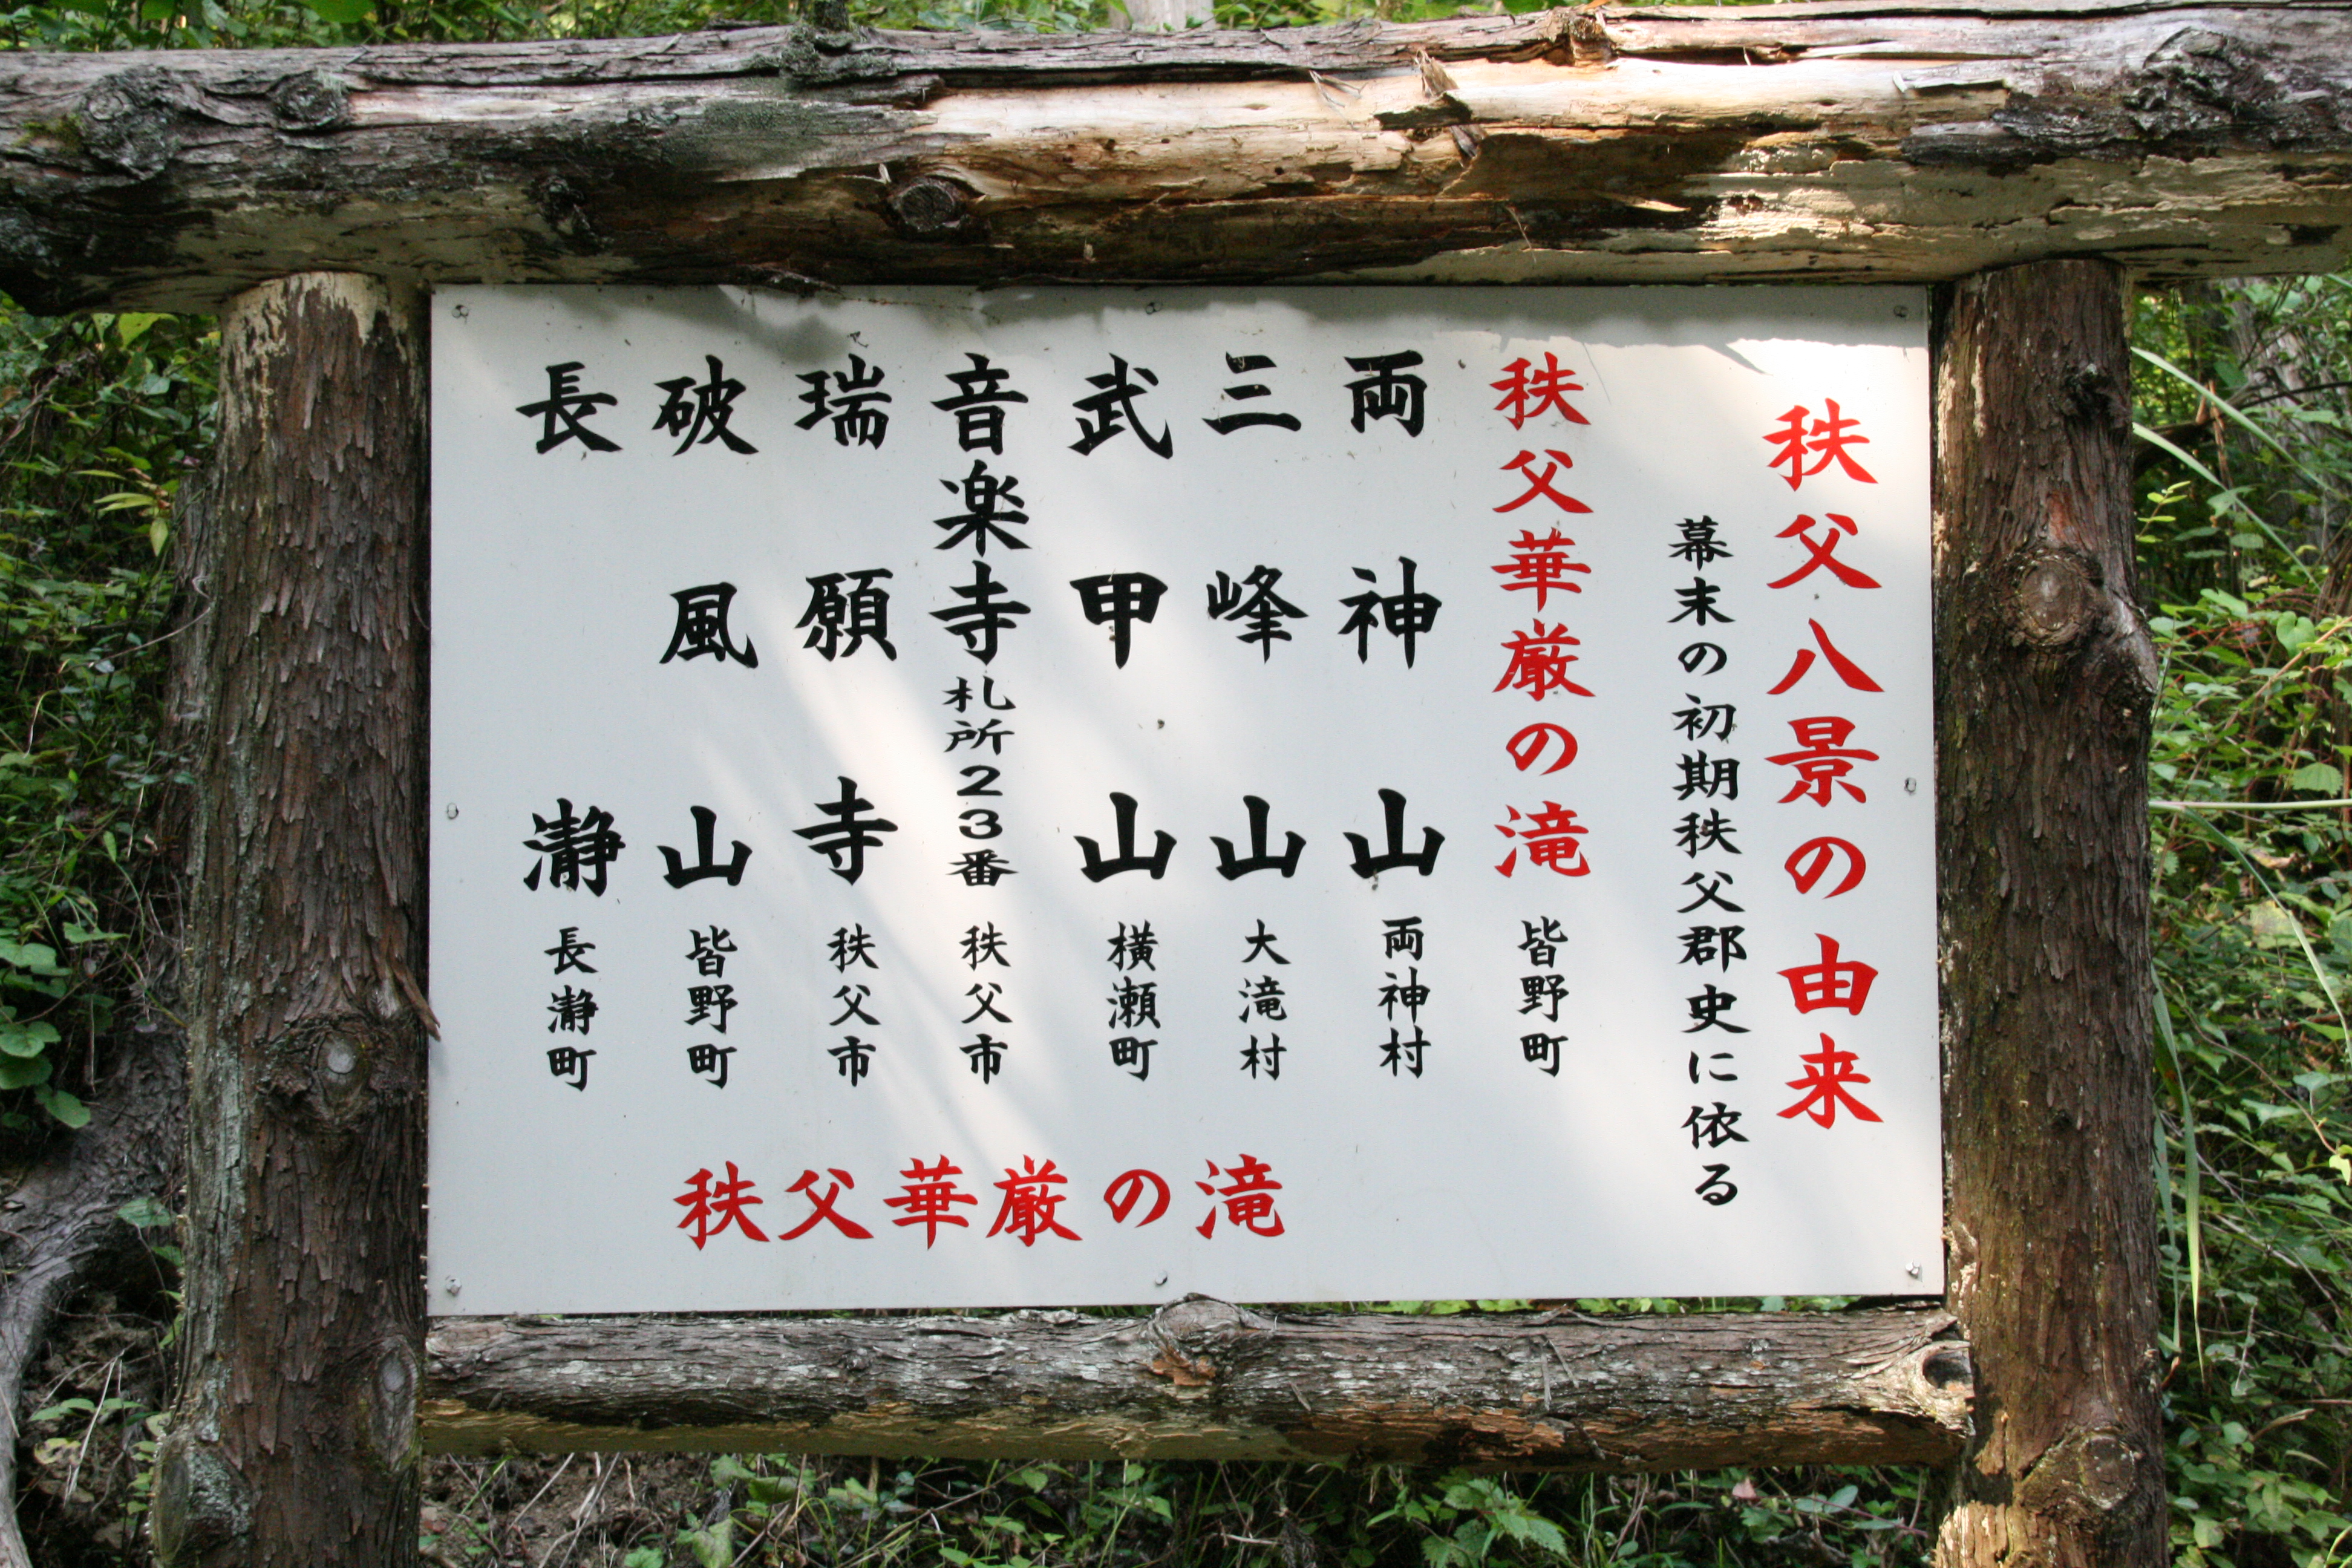 秩父八景の由来
幕末の初期秩父郡史に依る
秩父華厳の滝 皆野町
両神山 両神村
三峰山 大滝村
武甲山 横瀬町
音楽寺札所23番 秩父市
瑞願寺 秩父市
破風山 皆野町
長瀞 長瀞町
秩父華厳の滝